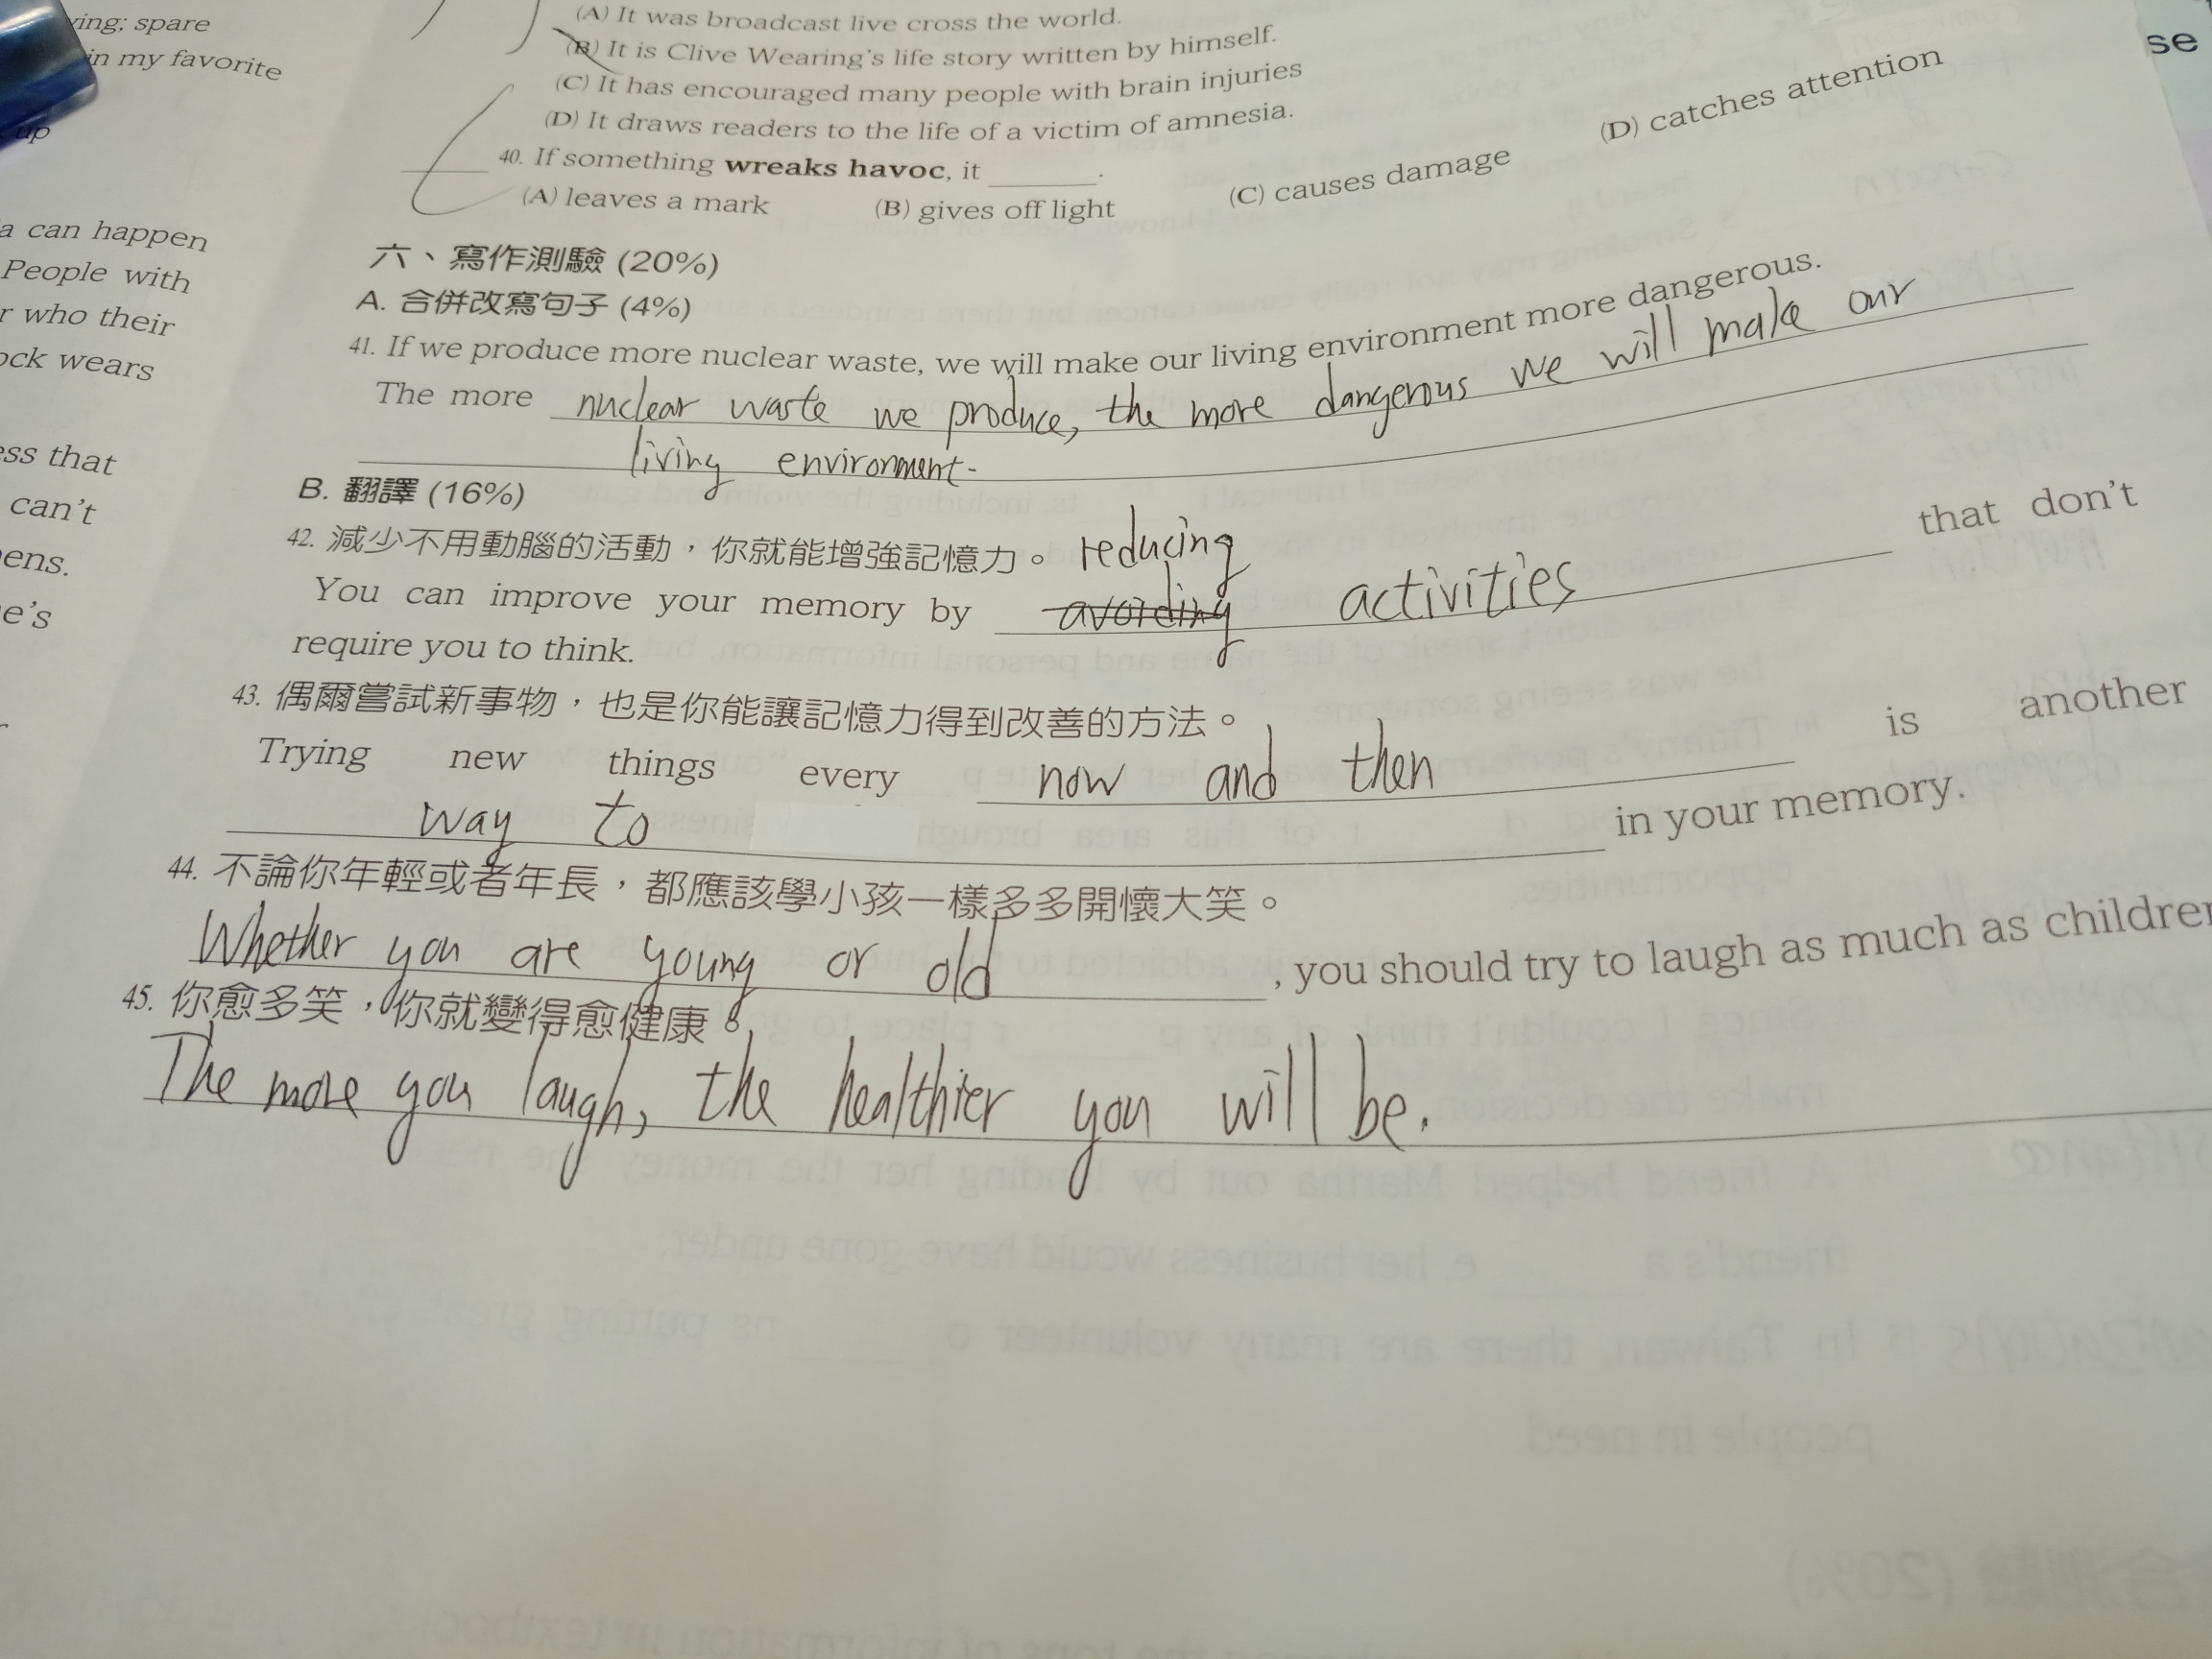 ying; spare
in my favorite
up
a can happen
People with
r who their
ock wears
ess that
can't
ens.
e's
se
(A) It was broadcast live cross the world.
(B) It is Clive Wearing's life story written by himself.
(C) It has encouraged many people with brain injuries
(D) It draws readers to the life of a victim of amnesia.
40. If something wreaks havoc, it ________.
(A) leaves a mark (B) gives off light (C) causes damage (D) catches attention
六、寫作測驗 (20%)
A. 合併改寫句子 (4%)
41. If we produce more nuclear waste, we will make our living environment more dangerous.
The more nuclear waste we produce, the more dangerous we will make our
living environment.
B. 翻譯 (16%)
42. 減少不用動腦的活動，你就能增強記憶力。 reducing
You can improve your memory by avoiding activities that don't
require you to think.
43. 偶爾嘗試新事物，也是你能讓記憶力得到改善的方法。
Trying new things every now and then is another
way to in your memory.
44. 不論你年輕或者年長，都應該學小孩一樣多多開懷大笑。
Whether you are young or old, you should try to laugh as much as children
45. 你愈多笑，你就變得愈健康。
The more you laugh, the healthier you will be.